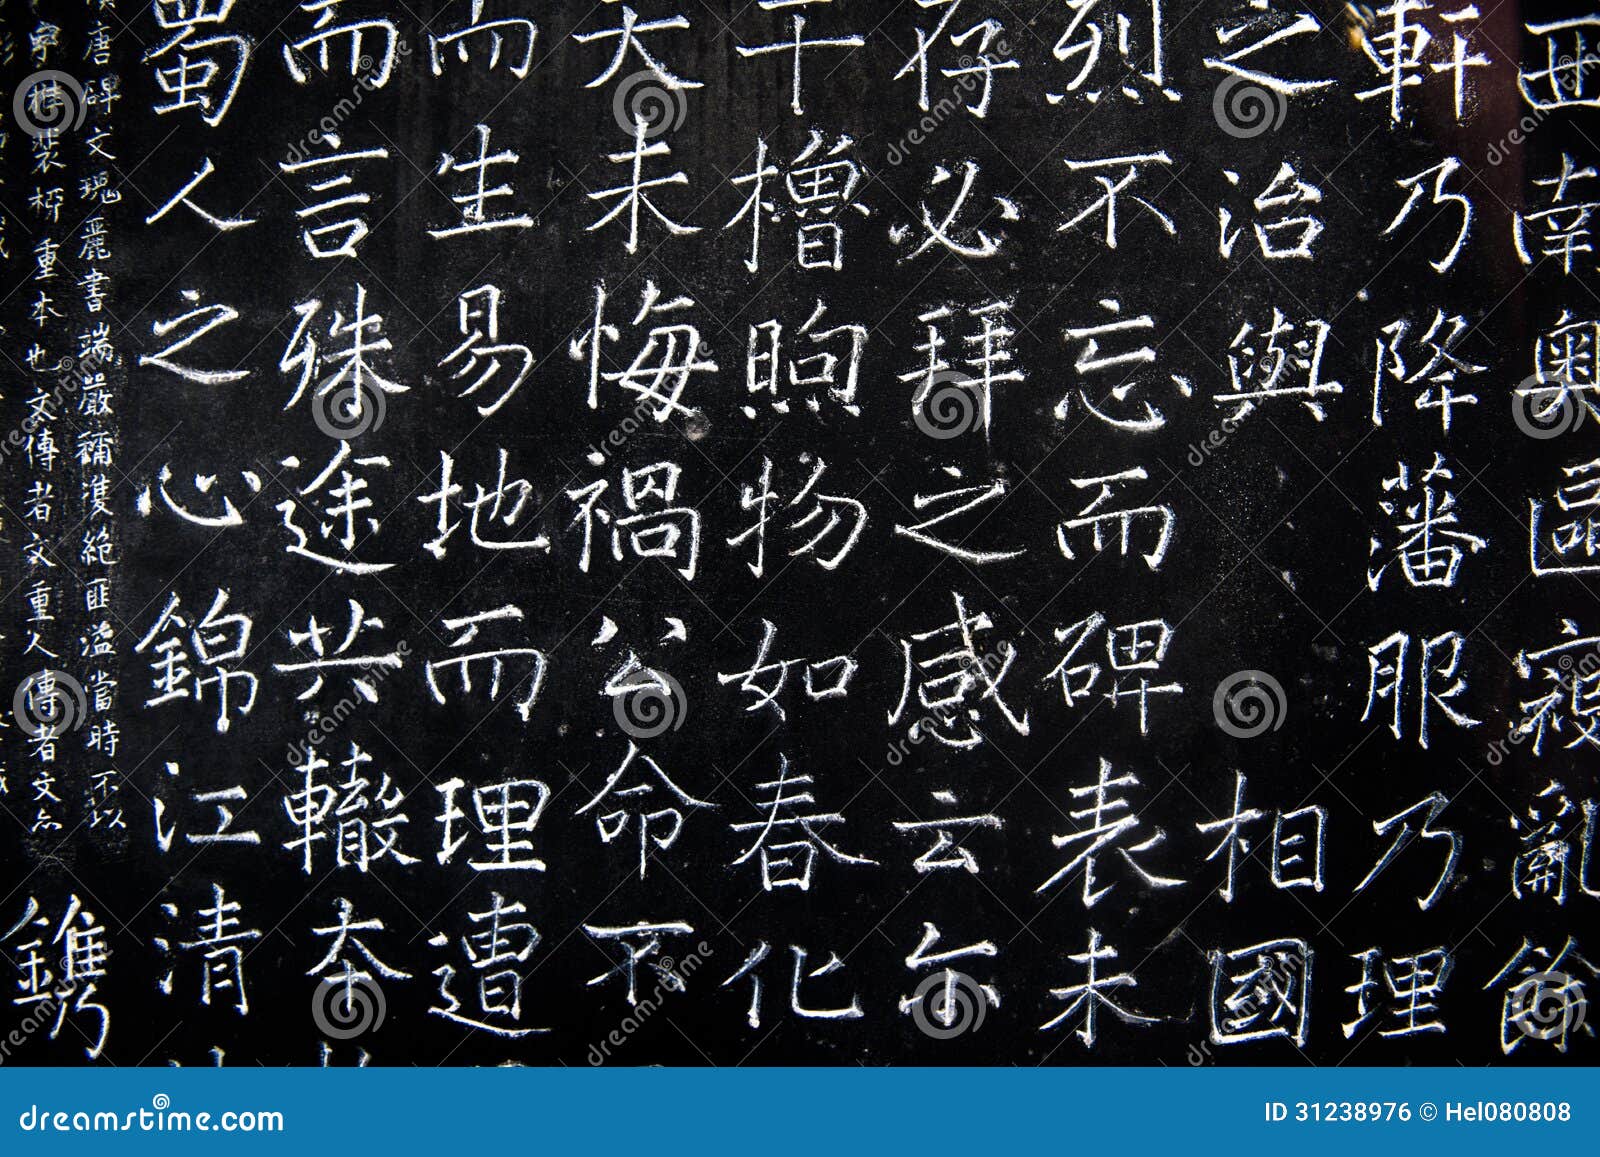 西南奧區寇亂餘
軒乃降藩服乃理
之治與 相國
烈不忘而碑表未
存必拜之感云尔
干櫓煦物如春化
天未悔禍公命不
而生易地而理遭
而言殊途共轍本
蜀人之心錦江清
唐碑文瑰麗書端嚴獲絶匪溢當時不以
重本也文傳者文重人傳者文
鐫
dreamstime.com
ID 31238976 © Hel080808